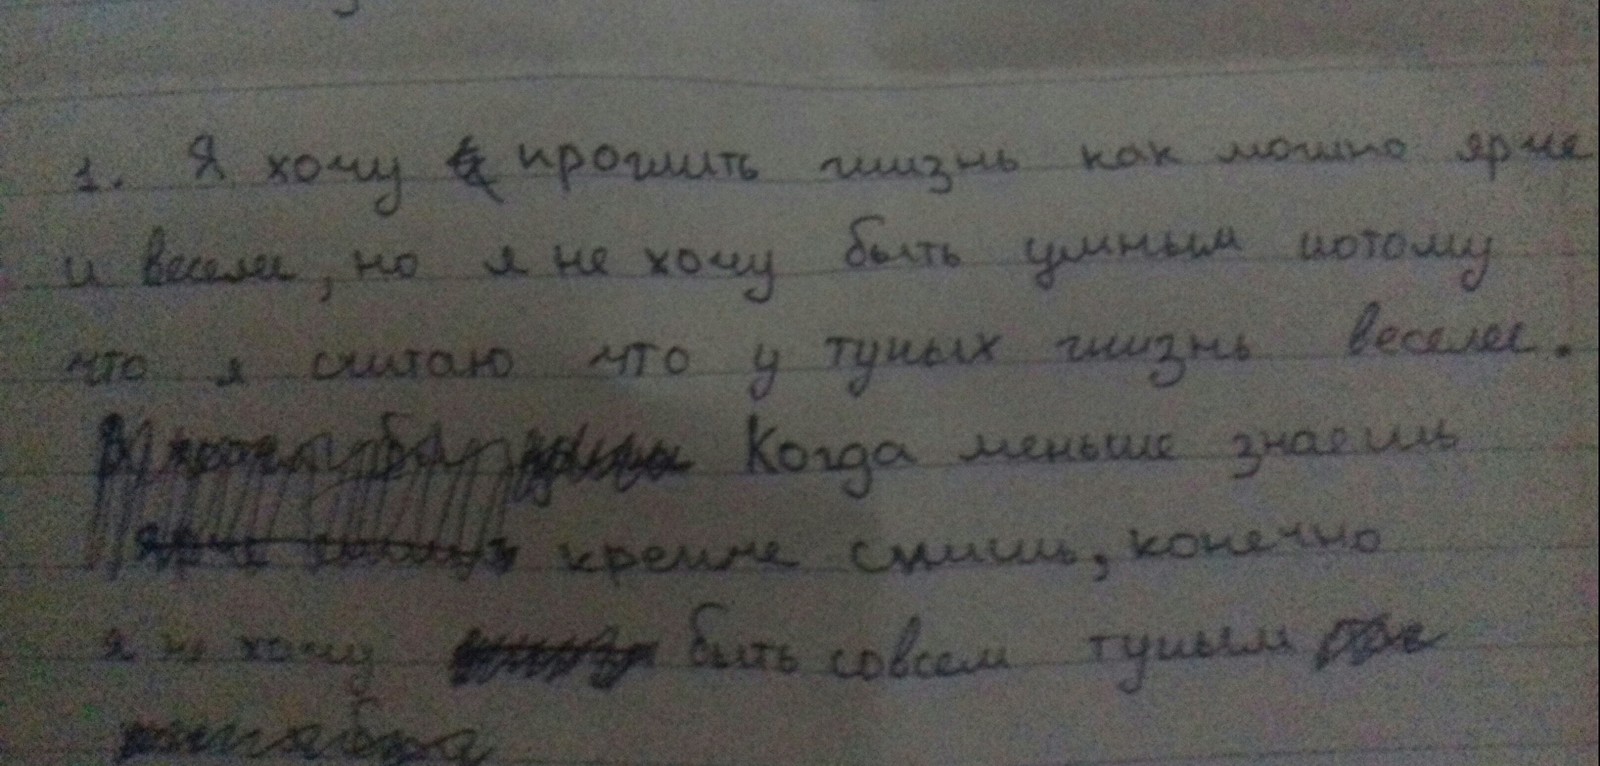 1. Я хочу прожить жизнь как можно ярче
и веселее, но я не хочу быть умным потому
что я считаю что у тупых жизнь веселее.
Когда меньше знаешь
крепче спишь, конечно
я не хочу быть совсем тупым